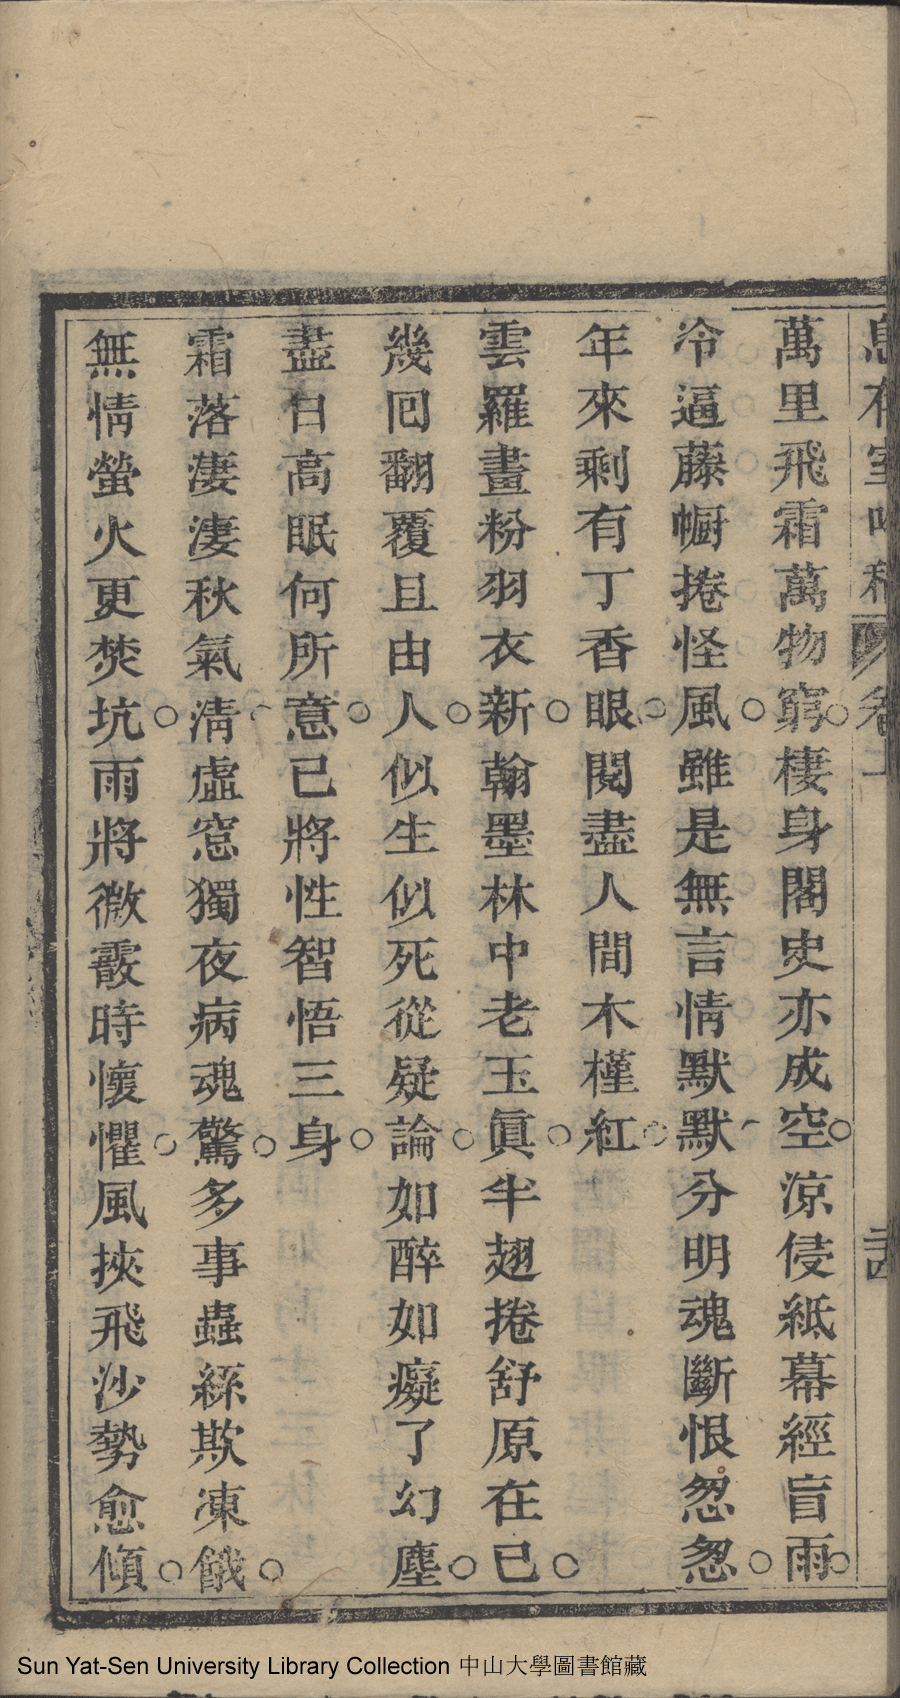 萬里飛霜萬物窮棲身閣史亦成空涼侵紙幕經盲雨
冷逼藤幮捲怪風雖是無言情默默分明魂斷恨怱怱
年來剩有丁香眼閱盡人間木槿紅
雲羅畫粉羽衣新翰墨林中老玉眞半翅捲舒原在已
幾囘翻覆且由人似生似死從疑論如醉如癡了幻塵
盡日高眠何所意已將性智悟三身
霜落淒淒秋氣清虛窓獨夜病魂驚多事蟲絲欺凍餓
無情螢火更焚坑雨將微霰時懷懼風挾飛沙勢愈傾
Sun Yat-Sen University Library Collection 中山大學圖書館藏